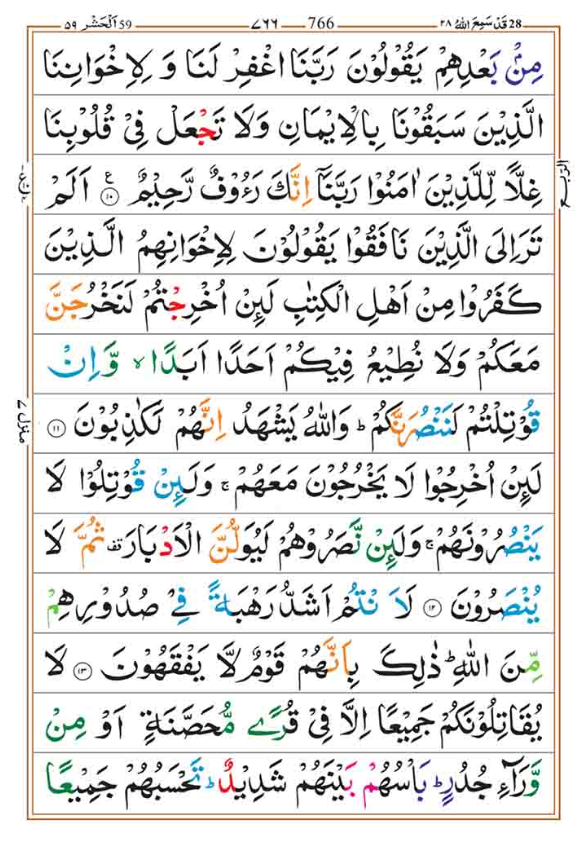 28 قَدْ سَمِعَ اللّٰهُ ٢٨
766 ٧٦٦
59 اَلْحَشْر ٥٩
مِنْۢ بَعْدِهِمْ يَقُوْلُوْنَ رَبَّنَا اغْفِرْ لَنَا وَ لِاِخْوَانِنَا
الَّذِيْنَ سَبَقُوْنَا بِالْاِيْمَانِ وَلَا تَجْعَلْ فِيْ قُلُوْبِنَا
غِلًّا لِّلَّذِيْنَ اٰمَنُوْا رَبَّنَآ اِنَّكَ رَءُوْفٌ رَّحِيْمٌ ۧ ١٠ اَلَمْ
تَرَ اِلَى الَّذِيْنَ نَافَقُوْا يَقُوْلُوْنَ لِاِخْوَانِهِمُ الَّذِيْنَ
كَفَرُوْا مِنْ اَهْلِ الْكِتٰبِ لَئِنْ اُخْرِجْتُمْ لَنَخْرُجَنَّ
مَعَكُمْ وَلَا نُطِيْعُ فِيْكُمْ اَحَدًا اَبَدًا ۙ وَّاِنْ
قُوْتِلْتُمْ لَنَنْصُرَنَّكُمْ ؕ وَاللّٰهُ يَشْهَدُ اِنَّهُمْ لَكٰذِبُوْنَ ١١
لَئِنْ اُخْرِجُوْا لَا يَخْرُجُوْنَ مَعَهُمْ ۚ وَلَئِنْ قُوْتِلُوْا لَا
يَنْصُرُوْنَهُمْ ۚ وَلَئِنْ نَّصَرُوْهُمْ لَيُوَلُّنَّ الْاَدْبَارَ ۟ ثُمَّ لَا
يُنْصَرُوْنَ ١٢ لَا۠ نْتُمْ اَشَدُّ رَهْبَةً فِيْ صُدُوْرِهِمْ
مِّنَ اللّٰهِ ؕ ذٰلِكَ بِاَنَّهُمْ قَوْمٌ لَّا يَفْقَهُوْنَ ١٣ لَا
يُقَاتِلُوْنَكُمْ جَمِيْعًا اِلَّا فِيْ قُرًى مُّحَصَّنَةٍ اَوْ مِنْ
وَّرَآءِ جُدُرٍ ؕ بَاْسُهُمْ بَيْنَهُمْ شَدِيْدٌ ؕ تَحْسَبُهُمْ جَمِيْعًا
الربع
منزل ٧